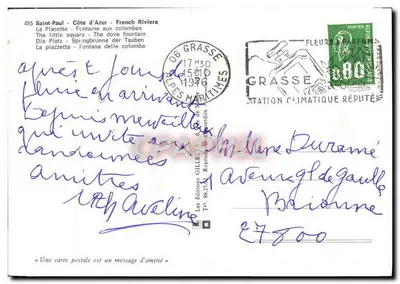 885 Saint-Paul - Côte d'Azur - French Riviera
La Placette - Fontaine aux colombes
The little square - The dove fountain
Die Platz - Springbrunne der Tauben
La piazzetta - Fontana delle colombe
06 GRASSE
17H30
1976
ALPES MARITIMES
FLEURS PARFUMS
GRASSE
STATION CLIMATIQUE RÉPUTÉE
0,80
après jours de
pluie en arrivant
Depuis merveilleux
qui invite aux
randonnées
Amitiés
Aveline
Les Éditions GILLETTA
avenue gl de gaulle
27800
« Une carte postale est un message d'amitié »